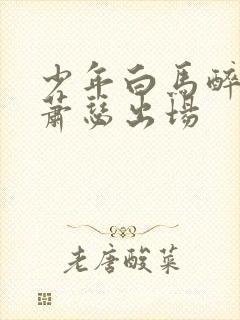 少年白馬醉
蕭瑟出場
老唐酸菜